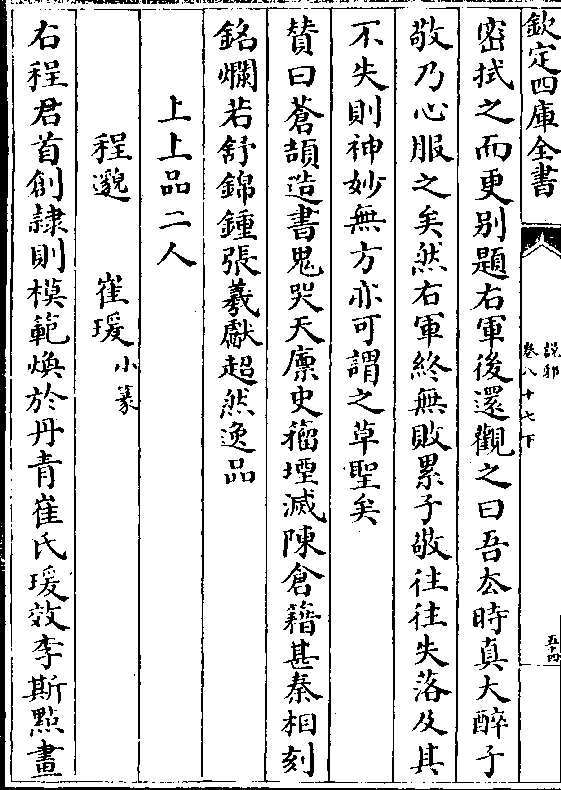 欽定四庫全書
說郛
卷八十七下
五十四
密拭之而更别題右軍後還觀之曰吾去時真大醉子
敬乃心服之矣然右軍終無敗累子敬往往失落及其
不失則神妙無方亦可謂之草聖矣
賛曰蒼頡造書鬼哭天廪史籀堙滅陳倉籍甚秦相刻
銘爛若舒錦鍾張羲獻超然逸品
上上品二人
程邈　崔瑗小篆
右程君首創隷則模範煥於丹青崔氏瑗效李斯點畫